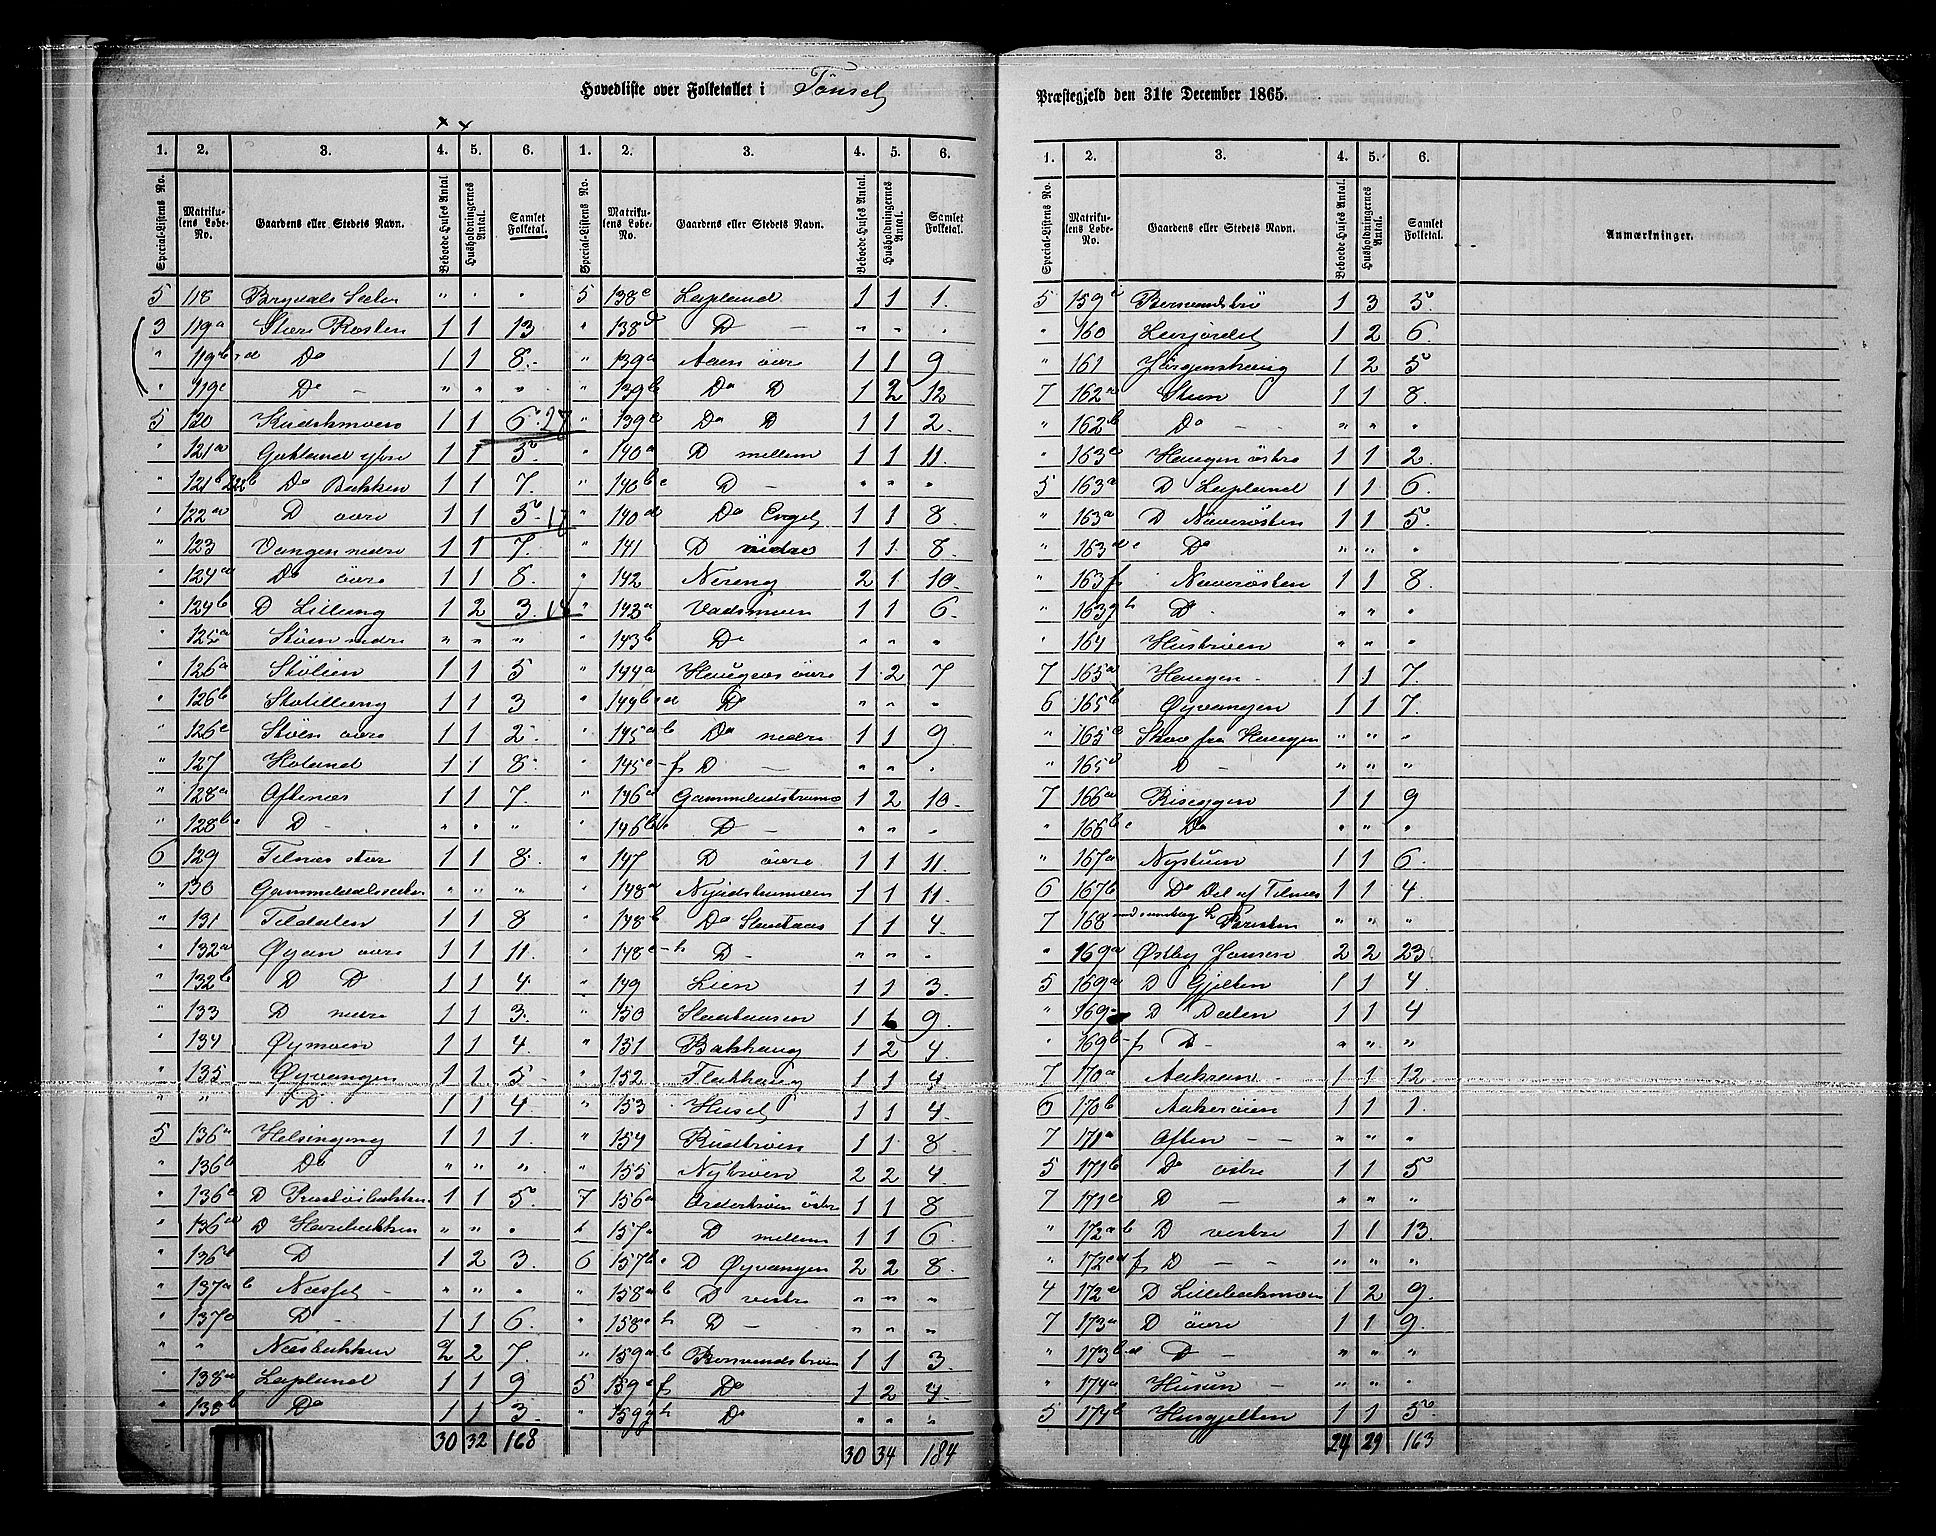 Hovedliste over Folketallet i Tönset
1. 2. 3. 4. 5. 6.
Special-Listens No. Matrikulens Løbe-No. Gaardens eller Stedets Navn. Beboede Huses Antal. Husholdningernes Antal. Samlet Folketal.
5 118 Brydals Sæter " . .
3 119a Store Røsten 1 1 13
" 119b-d Do 1 1 8.
" 119e Do - " " "
5 120 1 1 6. 27
" 121a 1 1 5.
" 121b 122b Do Bakken 1 1 7.
" 122a D övre 1 1 5.
" 123 Vangen nedre 1 1 7.
" 124a Do övre 1 1 8.
" 124b D Lilleeng 1 2 3. 18
" 125a Stöen nedre " " "
" 126a Stölien 1 1 5
" 126b 1 1 3
" 126c Stöen övre 1 1 2.
" 127 Holand 1 1 8.
" 128a Aftenæs 1 1 7.
" 128b D - " " "
6 129 Telnæs store 1 1 8.
" 130 Gammeldalssæter " " "
" 131 Teldalen 1 1 8
" 132a Øyan övre 1 1 11.
" 132b D D 1 1 4.
" 133 D nedre 1 1 3.
" 134 Øymoen 1 1 4.
" 135 Øyvangen 1 1 5
" " D. 1 1 4.
5 136a Helsingeng 1 1 1.
" 136b Do " " "
" 136c D 1 1 5.
" 136d D Harebakken " " .
" 136e D 1 2 3.
" 137a b Næsset - " " .
" 137c D - 1 1 6.
" " Næsbakken 2 2 7.
" 138a Lapland 1 1 9.
" 138b Do 1 1 3.
30 32 168
1. 2. 3. 4. 5. 6.
Special-Listens No. Matrikulens Løbe-No. Gaardens eller Stedets Navn. Beboede Huses Antal. Husholdningernes Antal. Samlet Folketal.
5 138c Lapland 1 1 1.
" 138d D - " " .
" 139a Aaen övre 1 1 9
" 139b Do D 1 2 12
" 139c Do D 1 1 2.
" 140a D mellem 1 1 11.
" 140b c D - " " "
" 140d Do Enget 1 1 8.
" 141 D nedre 1 1 8.
" 142 Nereng 2 1 10.
" 143a Vadsmoen 1 1 6.
" 143b Do " " "
" 144a Haugen övre 1 2 7
" 144b-d D " " .
" 145a b Do nedre 1 1 9.
" 145c-f D - " " .
" 146a 1 2 10.
" 146b c D - " " .
" 147 D övre 1 1 11.
" 148a 1 1 11.
" 148b Do 1 1 4.
" 148c-h D - " " .
" 149 Lien 1 1 3.
" 150 1 1 9.
" 151 Bakhaug 1 2 4.
" 152 Flathaug 1 1 4
" 153 Huset 1 1 4.
" 154 Rudbröen 1 1 8
" 155 Nybröen 2 2 4
7 156a östre 1 1 8
" 157a D mellem 1 1 6.
6 157b c D Øyvangen 2 2 8.
" 158a b D vestre " " .
" 158c h D - " " "
" 159a b 1 1 3.
5 159c f Do 1 2 4.
" 159g h Do " " "
30 34 184
Præstegjeld den 31te December 1865.
1. 2. 3. 4. 5. 6.
Special-Listens No. Matrikulens Løbe-No. Gaardens eller Stedets Navn. Beboede Huses Antal. Husholdningernes Antal. Samlet Folketal. Anmærkninger.
5 159i 1 3 5.
" 160 1 2 6.
" 161 Jörgenshaug 1 2 5
7 162a Stuen 1 1 8.
" 162b Do - - " " "
" 163c Haugen östre 1 1 2.
5 163a D Lapland 1 1 6.
" 163a D Næverösten 1 1 5.
" 163d e Do " " .
" 163f Næverösten 1 1 8.
" 163g h D. " " .
" 164 Husbröen " " "
7 165a Haugen - 1 1 7.
6 165b Øyvangen 1 1 7.
" 165c Skov fra Haugen " " .
" 165d D - " " "
7 166a Riseggen 1 1 9
" 166b c Do " " "
" 167a Nystuen 1 1 6.
6 167b Do Del af Telnæs 1 1 4
7 168 " " "
" 169a Østby Jonsen 2 2 23
5 169a D Gjelten 1 1 4
" 169 D Dalen 1 1 4
" 169b-f D - " " "
7 170a Aakran - 1 1 12.
6 170b Aakeröien 1 1 1.
7 171a Aften - - " " .
5 171b Do östre 1 1 5
7 171c D - " " "
" 172a b D vestre 1 1 13.
" 172c d f D - - " " "
4 172e D Lillebækmoen 1 2 9.
7 173a D övre 1 1 9.
" 173b-d D - " " "
" 174a Husan - " " .
5 174b Husgjelten 1 1 5.
24 29 163